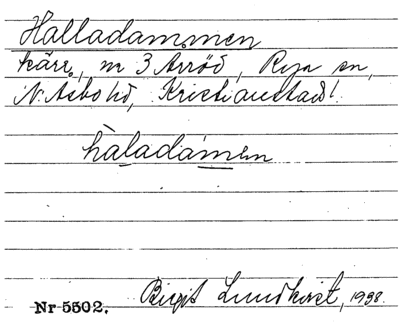 Halladammen
kärr, nr 3 Arröd, Rya sn,
N. Åsbo hd, Kristianstads l.
hàladámen
Nr 5502. Birgit Lundkvist, 1938.